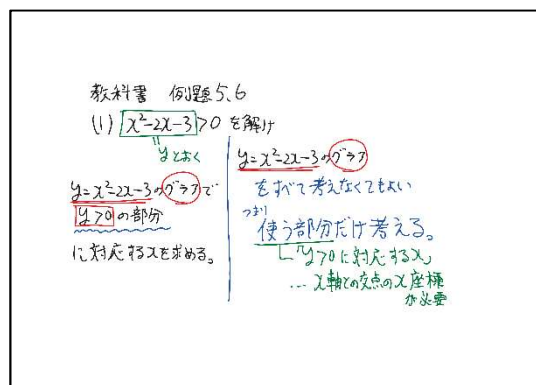 教科書 例題5、6
(1) x²-2x-3>0 を解け
"
yとおく
y=x²-2x-3のグラフで
y>0の部分
に対応するxを求める。
y=x²-2x-3のグラフ
をすべて考えなくてもよい
つまり
使う部分だけ考える。
「y>0に対応するx」
… x軸との交点のx座標
が必要